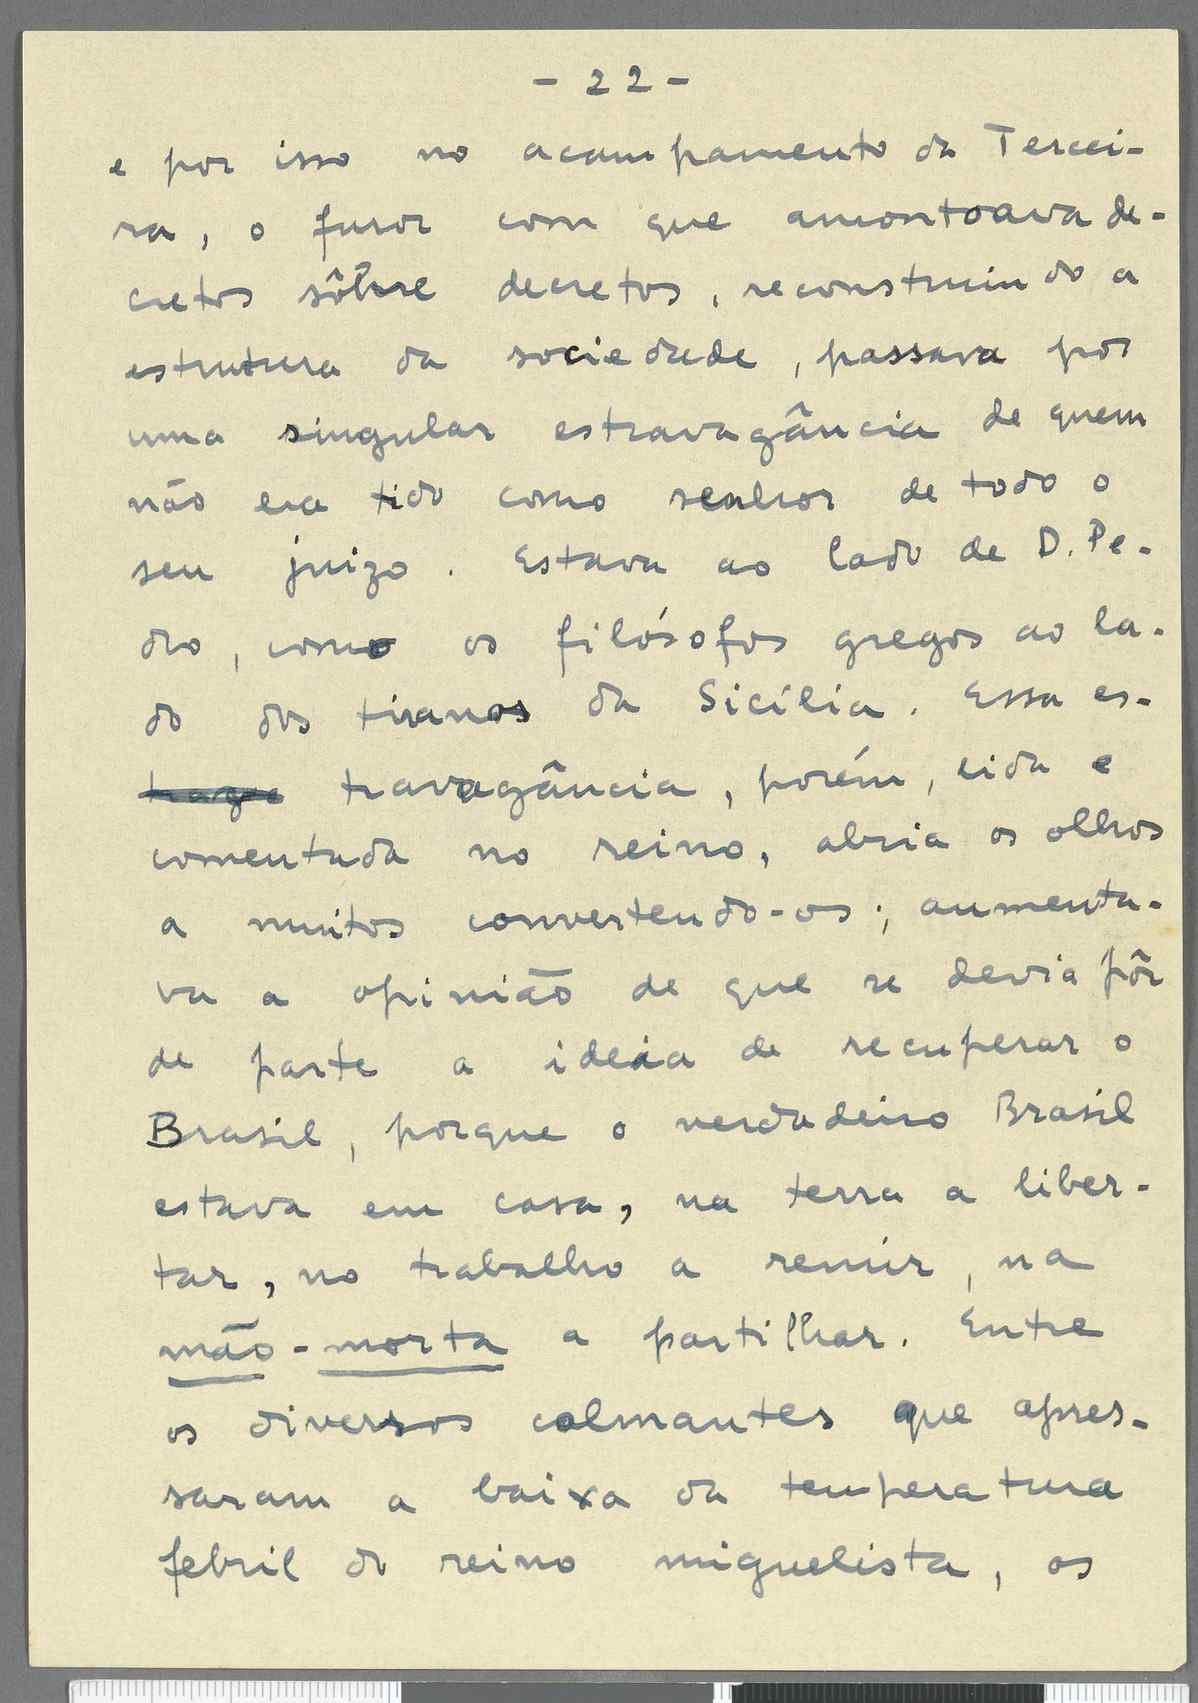 - 22 -
e por isso no acampamento da Tercei-
ra, o furor com que amontoava de-
cretos sôbre decretos, reconstruindo a
estrutura da sociedade, passava por
uma singular estravagância de quem
não era tido como senhor de todo o
seu juizo. Estava ao lado de D. Pe-
dro, como os filósofos gregos ao la-
do dos tiranos da Sicília. Essa es-
travagância, porém, lida e
comentada no reino, abria os olhos
a muitos convertendo-os; aumenta-
va a opinião de que se devia pôr
de parte a ideia de recuperar o
Brasil, porque o verdadeiro Brasil
estava em casa, na terra a liber-
tar, no trabalho a remir, na
mão-morta a partilhar. Entre
os diversos calmantes que apres-
saram a baixa da temperatura
febril do reino miguelista, os